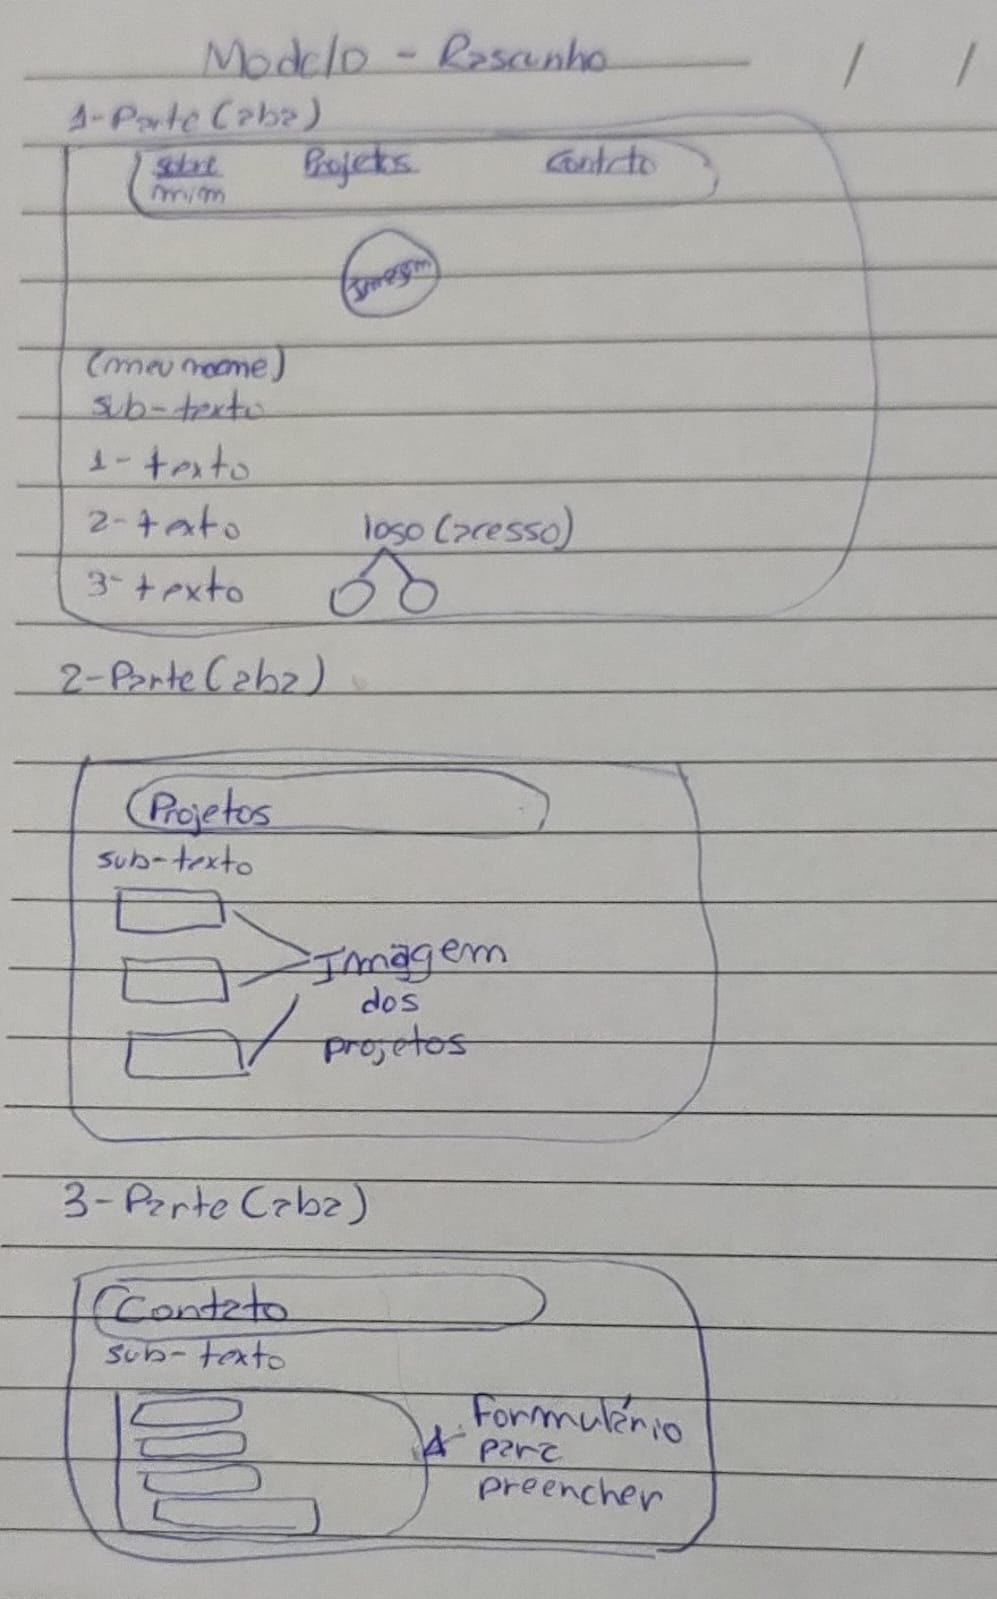 Modelo - Rascunho / /
1-Parte (aba)
Sobre mim Projetos Contato
Imagem
(meu nome)
sub-texto
1- texto
2-texto logo (acesso)
3-texto
2-Parte (aba)
Projetos
sub-texto
Imagem
dos
projetos
3-Parte (aba)
Contato
sub-texto
Formulário
para
preencher